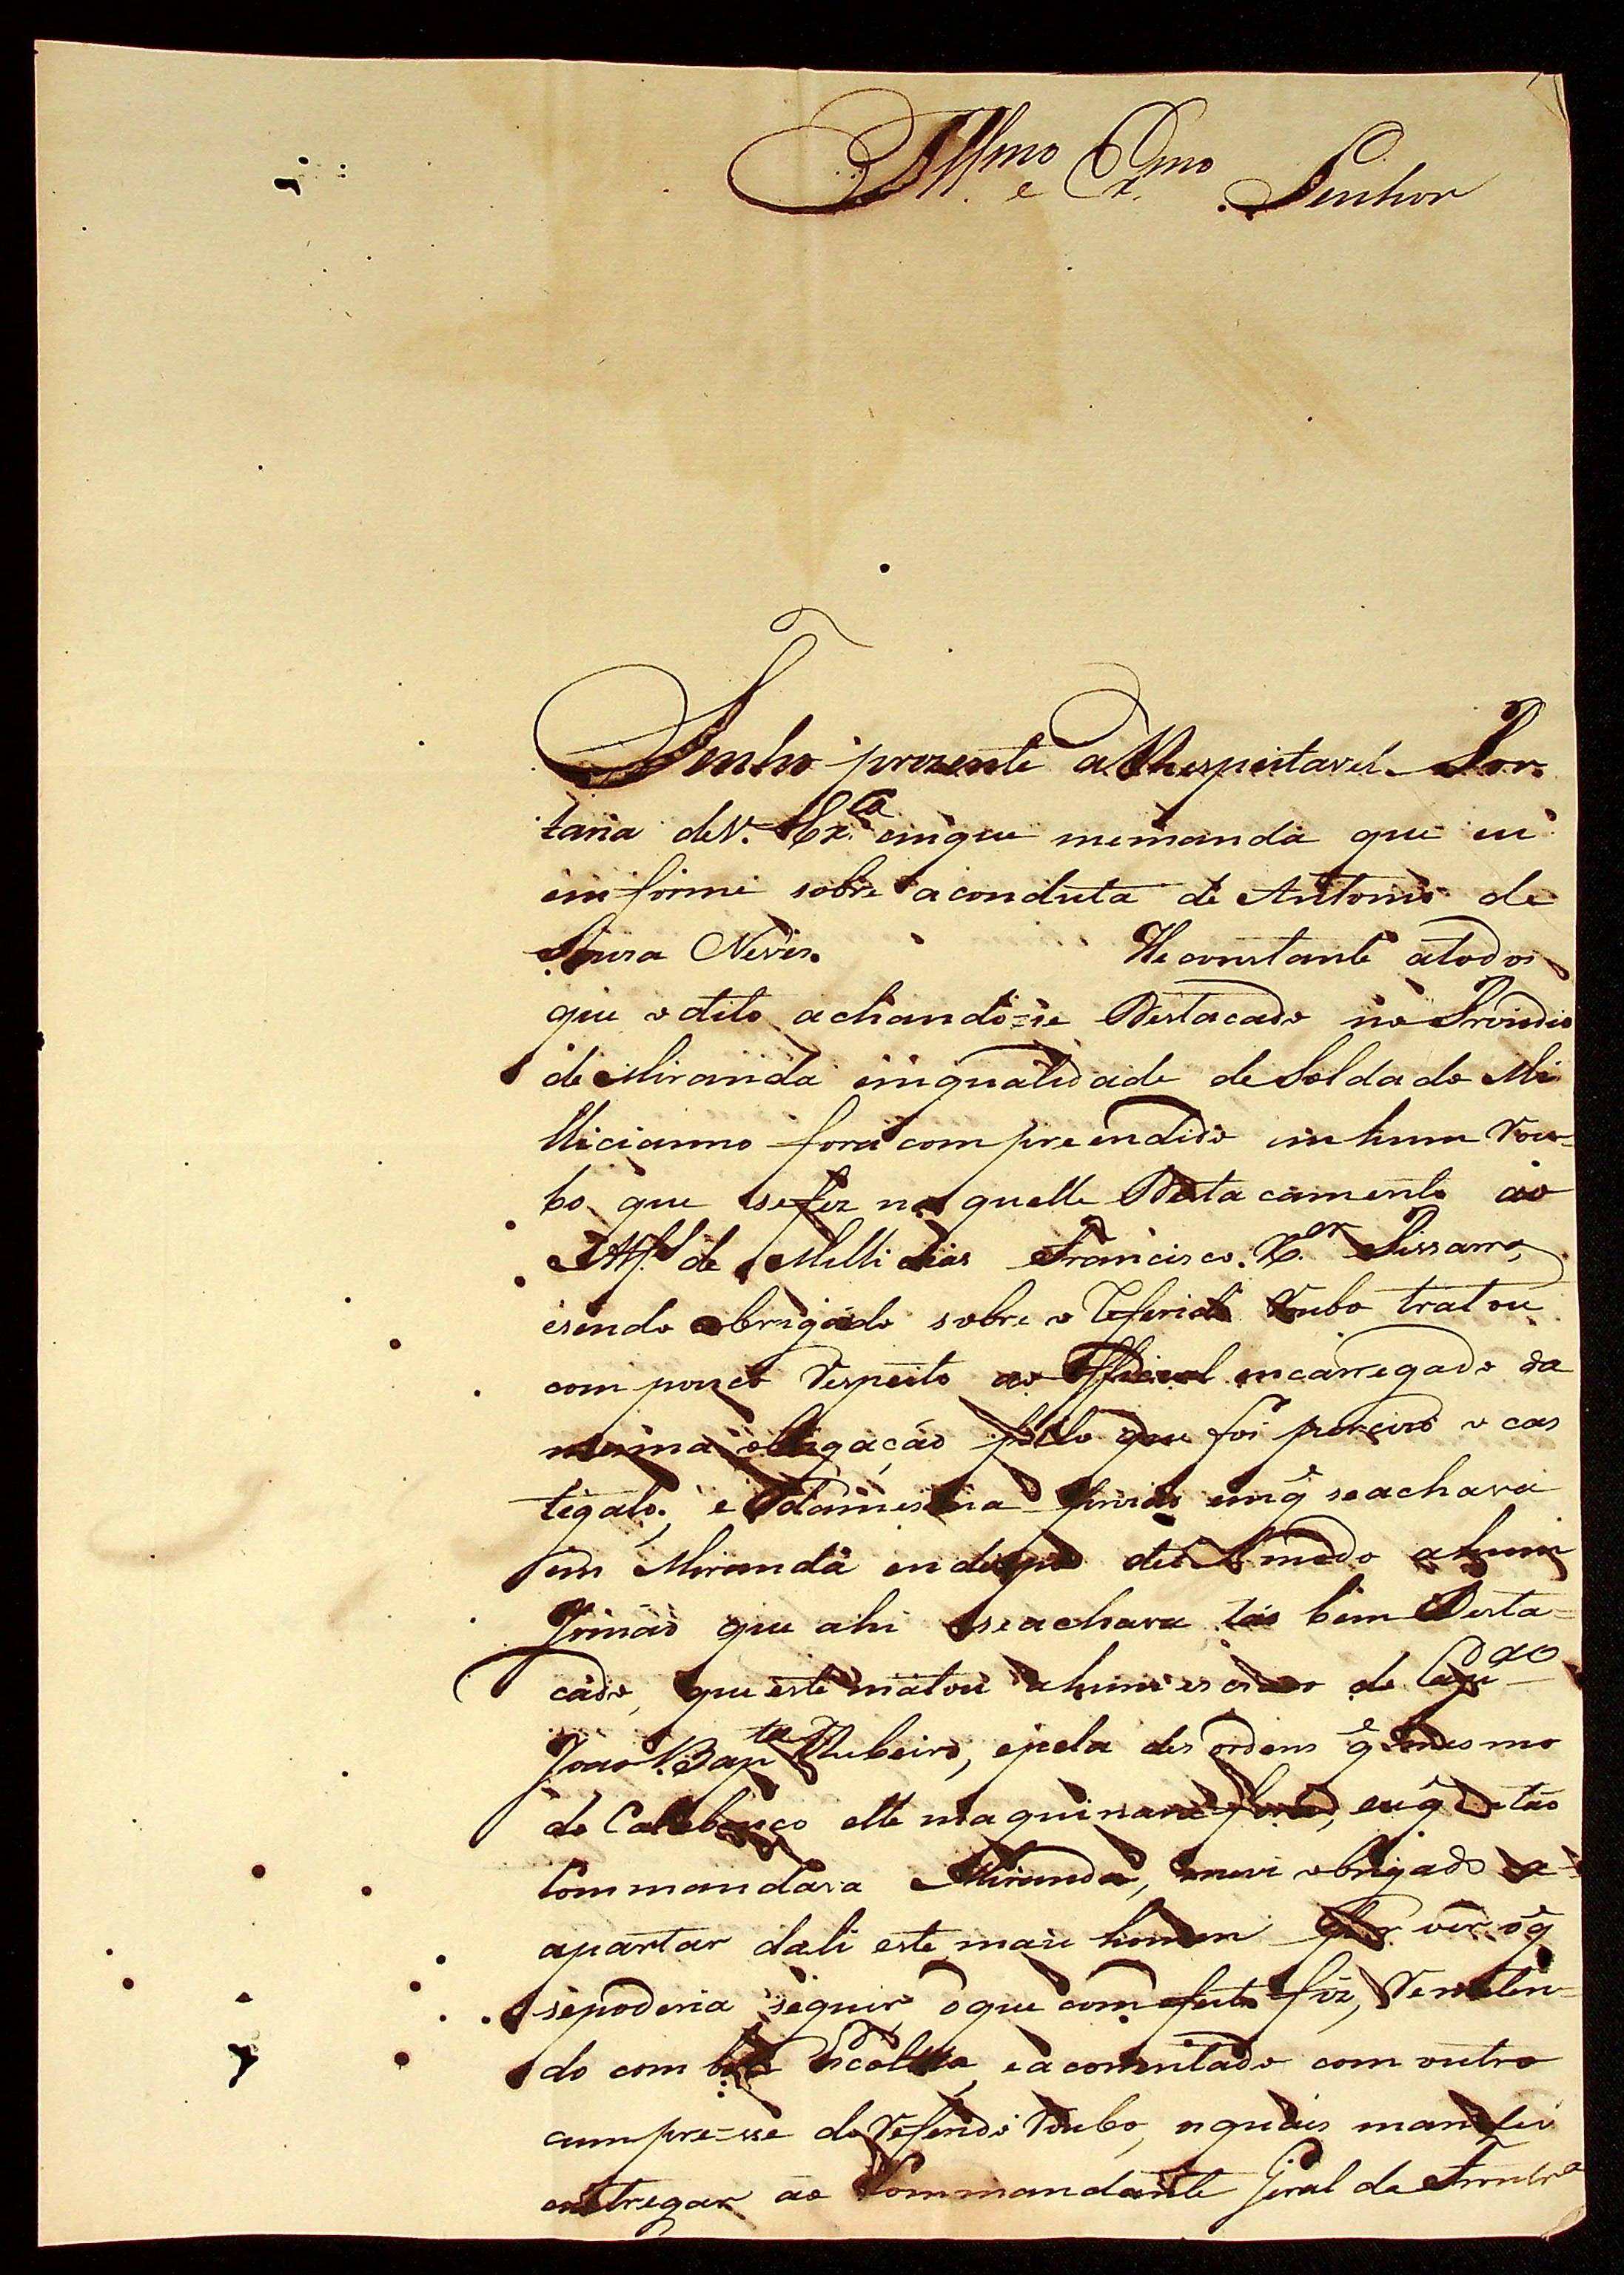 Illmo e Exmo Senhor
Tenho prezente a Respeitavel Por
taria de V. Exca em que me manda que eu
informe sobre a conduta de Antonio de
Souza Neves. He constante a todos
que o dito achando=se Destacado no Prezidio
de Miranda em qualidade de Soldado Mi
llicianno fora comprendido em hum rou-
bo que se fez naquelle Destacamento ao
Alfs de Millicias Francisco Xer Pissarro,
e sendo obrigado sobre o referido roubo tratou
com pouco respeito ao Official encarregado da
mesma obrigação pello que foi percizo o cas
tigalo; e da mesma em q se achava
em Miranda a hum
Irmão que ahi se achava tão bem Desta=
cado, que este matou a hum escravo do Capao
João Bapta Rubeiro, e pela des ordem q mesmo
do Calabouço elle maquinava fora, eu q então
Commandava Miranda, me vi obrigado a
apartar dali este mau homem por ver o q
se poderia seguir, o que com efeito fiz, remeten=
do com boa Escolta, e acomuitado com outro
cumpre=sse do referido roubo, os quais mandei
entregar ao Commandante Geral da Frontra